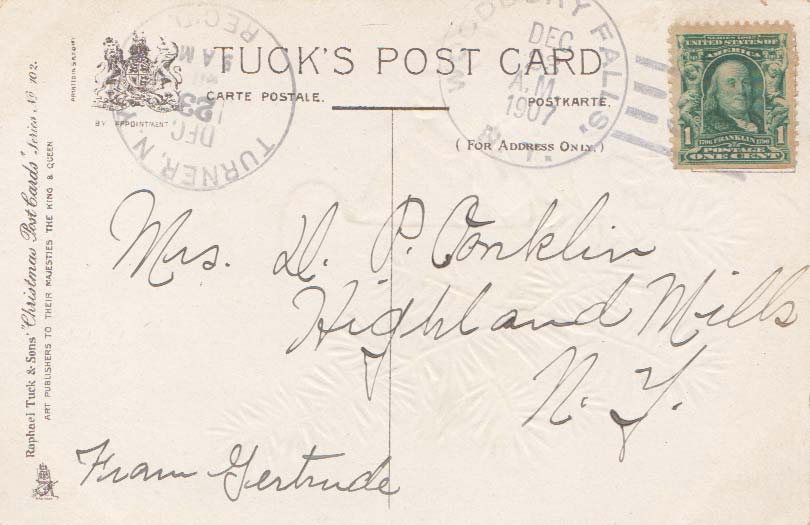 TUCK'S POST CARD
CARTE POSTALE.
POSTKARTE.
(FOR ADDRESS ONLY.)
BY APPOINTMENT
TURNER, N.
DEC
23
A M
REC'D
WOODBURY FALLS.
DEC
A.M.
1907
N.Y.
SERIES 1902
UNITED STATES OF AMERICA
1706 FRANKLIN 1790
1 POSTAGE 1
ONE CENT
Raphael Tuck & Sons' "Christmas Post Cards" Series No 102.
ART PUBLISHERS TO THEIR MAJESTIES THE KING & QUEEN
Mrs. D. P. Conklin
Highland Mills
N. Y.
From Gertrude